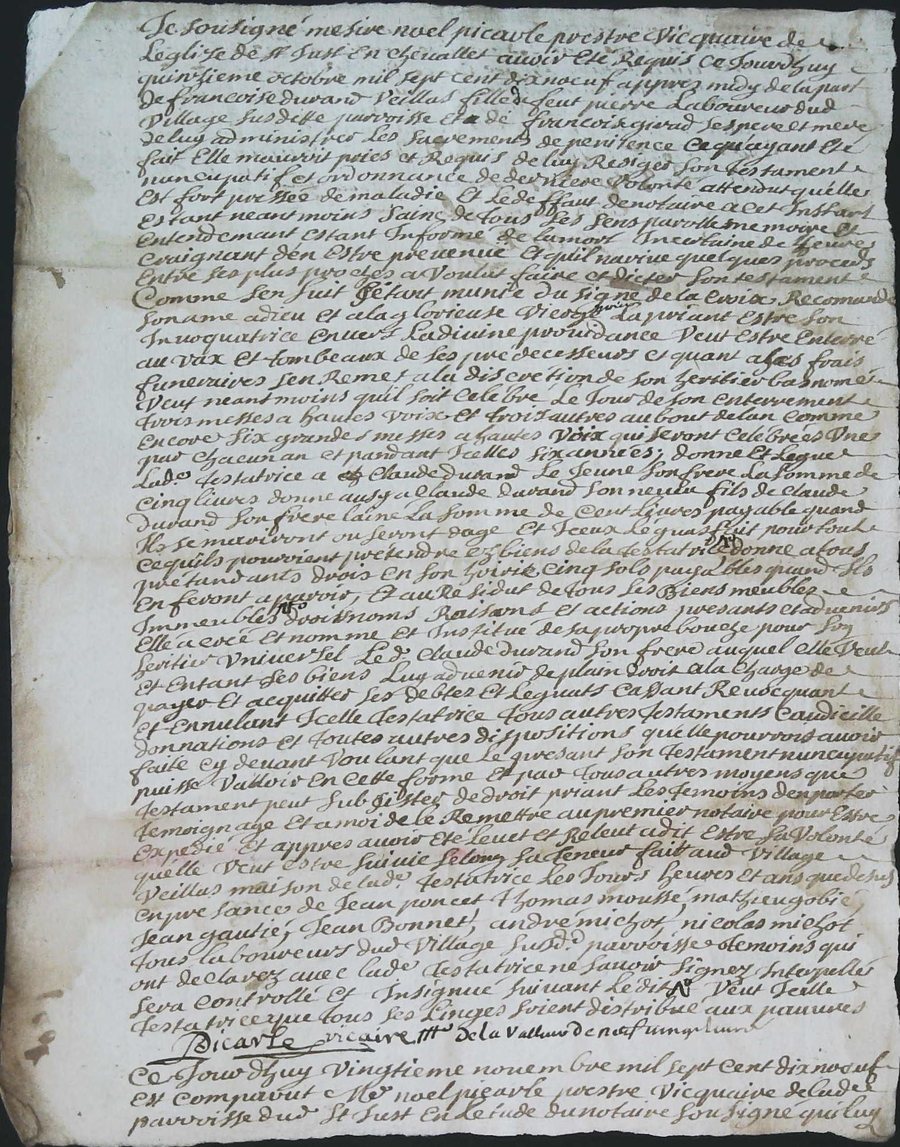 Je sousigné mesire noel picarle prestre Vicquaire de
Leglise de St Just En chevallet avoir Eté Requis ce Jourdhuy
quinzieme octobre mil sept cent dixnoeuf apprez midy de la part
De francoise durand Veillas fille de feut pierre Laboureur dud
Village susdite parroisse Et de francoise girad ses pere et mere
de luy administrer Les sacrements de penitence Ce quayant Eté
fait Elle mauroit priés et Requis de luy Rediger son testament
nuncupatif et ordonnance de derniere volonté attendut quelle
Est fort pressée de maladie Et Le deffaut de notaire a cet Instant
Estant neantmoins saine de tous ses sens parrolle memoire et
Entendemant Estant Informé de la mort Incertaine de lheure
Craignant den Estre prevenue Et quil narive quelques proceds
Entre ses plus proches a Voulut faire et dicter son testament
Comme sen suit Sétant munie du signe de la Croix, Recomande
son ame a dieu Et a la glorieuse Vierge La priant Estre son
Invoquatrice Envers La divine providance Veut Estre Enterré
au Vax Et tombeaux de ses predecesseurs et quant a ses frais
funeraires sen Remet a la discretion de son heritier bas nomé
Veut neantmoins quil soit Celebré Le Jour de son Enterrement
trois messes a hautes voix Et trois autres au bout de lan Comme
Encore six grandes messes a hautes Voix qui seront Celebrées Une
par chacun an Et pandant Icelles six années, donne Et Legue
Lade testatrice a Claude durand Le Jeune son frere La somme de
Cinq livres donne aussy a Claude durand son neveu fils de Claude
Durand son frere laine La somme de Cent Livres payable quand
Ils se mariront ou seront dage Et Iceux Leguas fait pour tout
Ce quils pourroient pretendre ez biens de la testatrice donne a tous
pretandants drois En son hoirie Cinq sols payables quand Ils
En feront aparoir, Et au Residut de tous ses Biens meubles
Immeubles droits noms Raisons et actions presants et advenirs
Elle a Creé Et nommé Et Institué de sa propre bouche pour son
heritier Universel Led Claude durand son frere auquel elle Veut
Et Entant ses biens Luy advenir de plain droit a la Charge de
payer Et acquitter ses debtes Et Leguats Cassant Revocquant
Et Ennulant Icelle testatrice tous autres testaments Caudicille
donnations Et toutes autres dispositions quelle pourrois avoir
faite Cy devant Voulant que Le presant son testament nuncupatif
puisse Valloir En Cette forme Et par tous autres moyens que
testament peut subsister de droit priant Les temoins den porter
temoignage Et a moi de le Remettre au premier notaire pour Estre
Expedié Et appres avoir Eté Leut Et Releut a dit Estre sa Volonté
quelle Veut Estre suivie selong sa teneur fait aud Village
Veillas maison de lade testatrice Les Jours heures Et ans que dessus
En presance de Jean poncet thomas moussé, mathieu gobié,
Jean gautié, Jean Bonnet, andre michot, nicolas michot
tous laboureurs dud Village susd parroisse temoins qui
ont declarez avec lade testatrice ne savoir signez Interpellé
sera Controllé Et Insignué suivant Ledit Veut Icelle
testatrice que tous ses Linges soient distribué aux pauvres
Picarle vicaire
Ce Jourdhuy Vingtieme novembre mil sept Cent dixnoeuf
Est Comparut Mre noel picarle prestre Vicquaire de lade
parroisse dud St Just En Letude du notaire sousigné qui luy